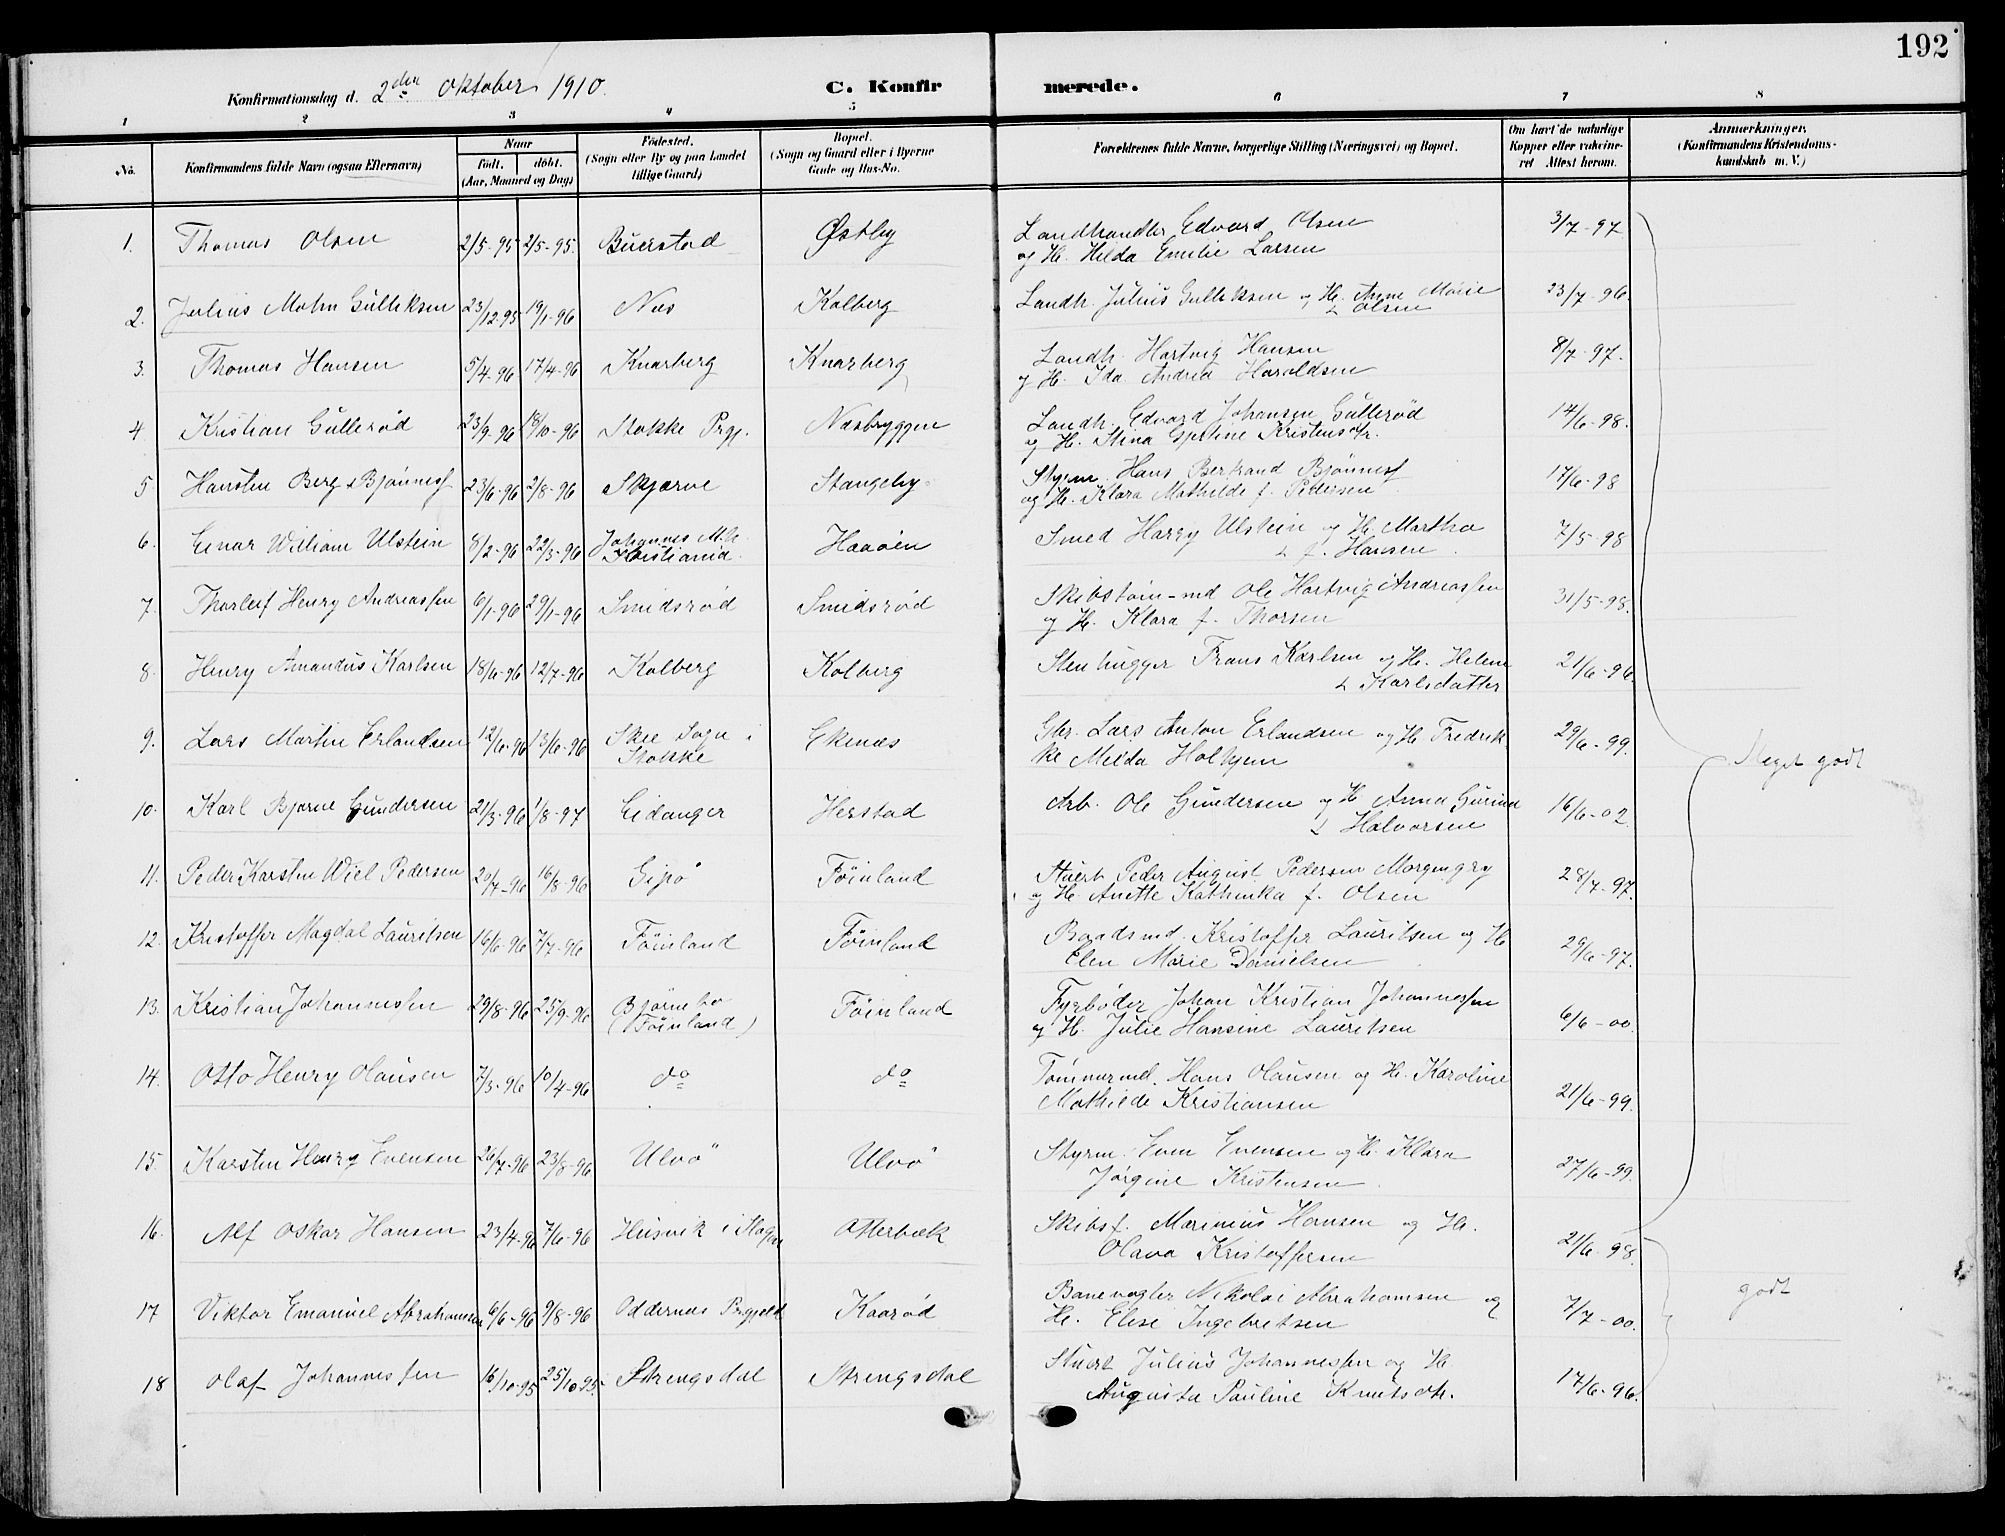 192
Konfirmationsdag d. 2den Oktober 1910.
C. Konfirmerede.
1 2 3 4 5 6 7 8
No.
Konfirmandens fulde Navn (ogsaa Efternavn)
Naar
født. døbt.
(Aar, Maaned og Dag)
Fødested.
(Sogn eller By og paa Landet
tillige Gaard)
Bopæl.
(Sogn og Gaard eller i Byerne
Gade og Hus-No.
Forældrenes fulde Navne, borgerlige Stilling (Næringsvei) og Bopæl.
Om havt de naturlige
Kopper eller vakcine-
ret Attest herom.
Anmerkninger.
(Konfirmandens Kristendoms-
kundskab m. V.)
1. Thomas Olsen 2/5-95 2/5-95. Buerstad Østby Landhandler Edvard Olsen 3/7-97
og H. Hilda Emilie Larsen
2. Julius Mohn Gulliksen 23/12-95 19/1-96 Nes Kolberg Landh. Julius Gulliksen og H. Anne Marie 23/7-96.
Olsen
3. Thomas Hansen 5/4-96 17/4-96 Knarberg Knarberg Landh. Hartvig Hansen 8/7-97.
og H. Ida Andrea Haroldsen
4. Kristian Gullerød 23/9-96 18/10-96 Stokke Prgj. Næsbryggen Landh. Edvard Johansen Gullerød 14/6-98.
og H. Stina Gjertine Kristensdtr.
5. Karsten Berg Bjønness 23/6-96 2/8-96 Skjærve Stangeby Styrm. Hans Bertrand Bjønness 17/6-98
og H. Klara Mathilde f. Pedersen
6. Einar William Ulstein 8/2-96 22/3-96 Johannes M.h. Kristiania Haaøen Smed Harry Ulstein og H. Martha 7/5-98
f. Hansen
7. Thorleif Henry Andreassen 6/1-96 29/1-96 Smidsrød Smidsrød Skibstøm-md Ole Hartvig Andreassen 31/5-98.
og H. Klara f. Thorsen
8. Henry Amandus Karlsen 18/6-96 12/7-96 Kolberg Kolberg Stenhugger Frans Karlsen og H. Helene 21/6-96.
Karlsdatter
9. Lars Martin Erlandsen 12/6-96 13/6-96 Skee Sogn i Stokke Ekenæs Gbr. Lars Anton Erlandsen og H. Fredrik- 29/6-99.
ke Milda Holhjem
Meget godt
10. Karl Bjarne Gundersen 21/3-96 1/8-97 Eidanger Herstad Arb. Ole Gundersen og H. Anna Gurine 16/6-02.
Halvorsen
11. Peder Karsten Wiel Pedersen 20/7-96 16/8-96 Gipø Føinland Stuert Peder August Pedersen Morgengry 28/7-97.
og H. Anette Kathinka f. Olsen
12. Kristoffer Magdal Lauritsen 16/6-96 7/7-96 Føinland Føinland Baadsmd. Kristoffer Lauritsen og H. 29/6-97.
Elen Marie Danielsen
13. Kristian Johannessen 29/8-96 25/9-96 Bjørnebo (Føinland) Føinland Fyrbøder Johan Kristian Johannessen 6/6-00.
og H. Julie Hansine Lauritsen
14. Otto Henry Olausen 7/3-96 10/4-96 do do Tømmermd. Hans Olausen og H. Karoline 21/6-99.
Mathilde Kristiansen
15. Karsten Henry Evensen 26/7-96 23/8-96 Ulvø Ulvø Styrm. Even Evensen og H. Klara 27/6-99.
Jørgine Kristensen
16. Alf Oskar Hansen 23/4-96 7/6-96 Husvik i Slagen Otterbæk Skibsf. Marinius Hansen og H. 21/6-98.
Olava Kristoffersen
17 Viktor Emanuel Abrahamsen 6/6-96 9/8-96 Oddernes Prgjeld Kaarød Banevogter Nikolai Abrahamsen og 7/7-00.
H. Elise Ingebretsen
godt
18 Olaf Johannessen 16/10-95 25/10-95 Strengsdal Strengsdal Stuert Julius Johannessen og H. 17/6-96.
Augusta Pauline Knutsdtr.